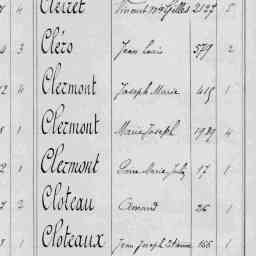 4 Cleiret Vincent 2127 5
4 3 Cléro Jean Louis 579 2
4 Clermont Joseph Marie 415 1
1 Clermont Marie Joseph 1989 4
2 1 Clermont Marie 17 1
2 Cloteau Armand 26 1
1 Cloteaux Jean Joseph Etienne 166 1